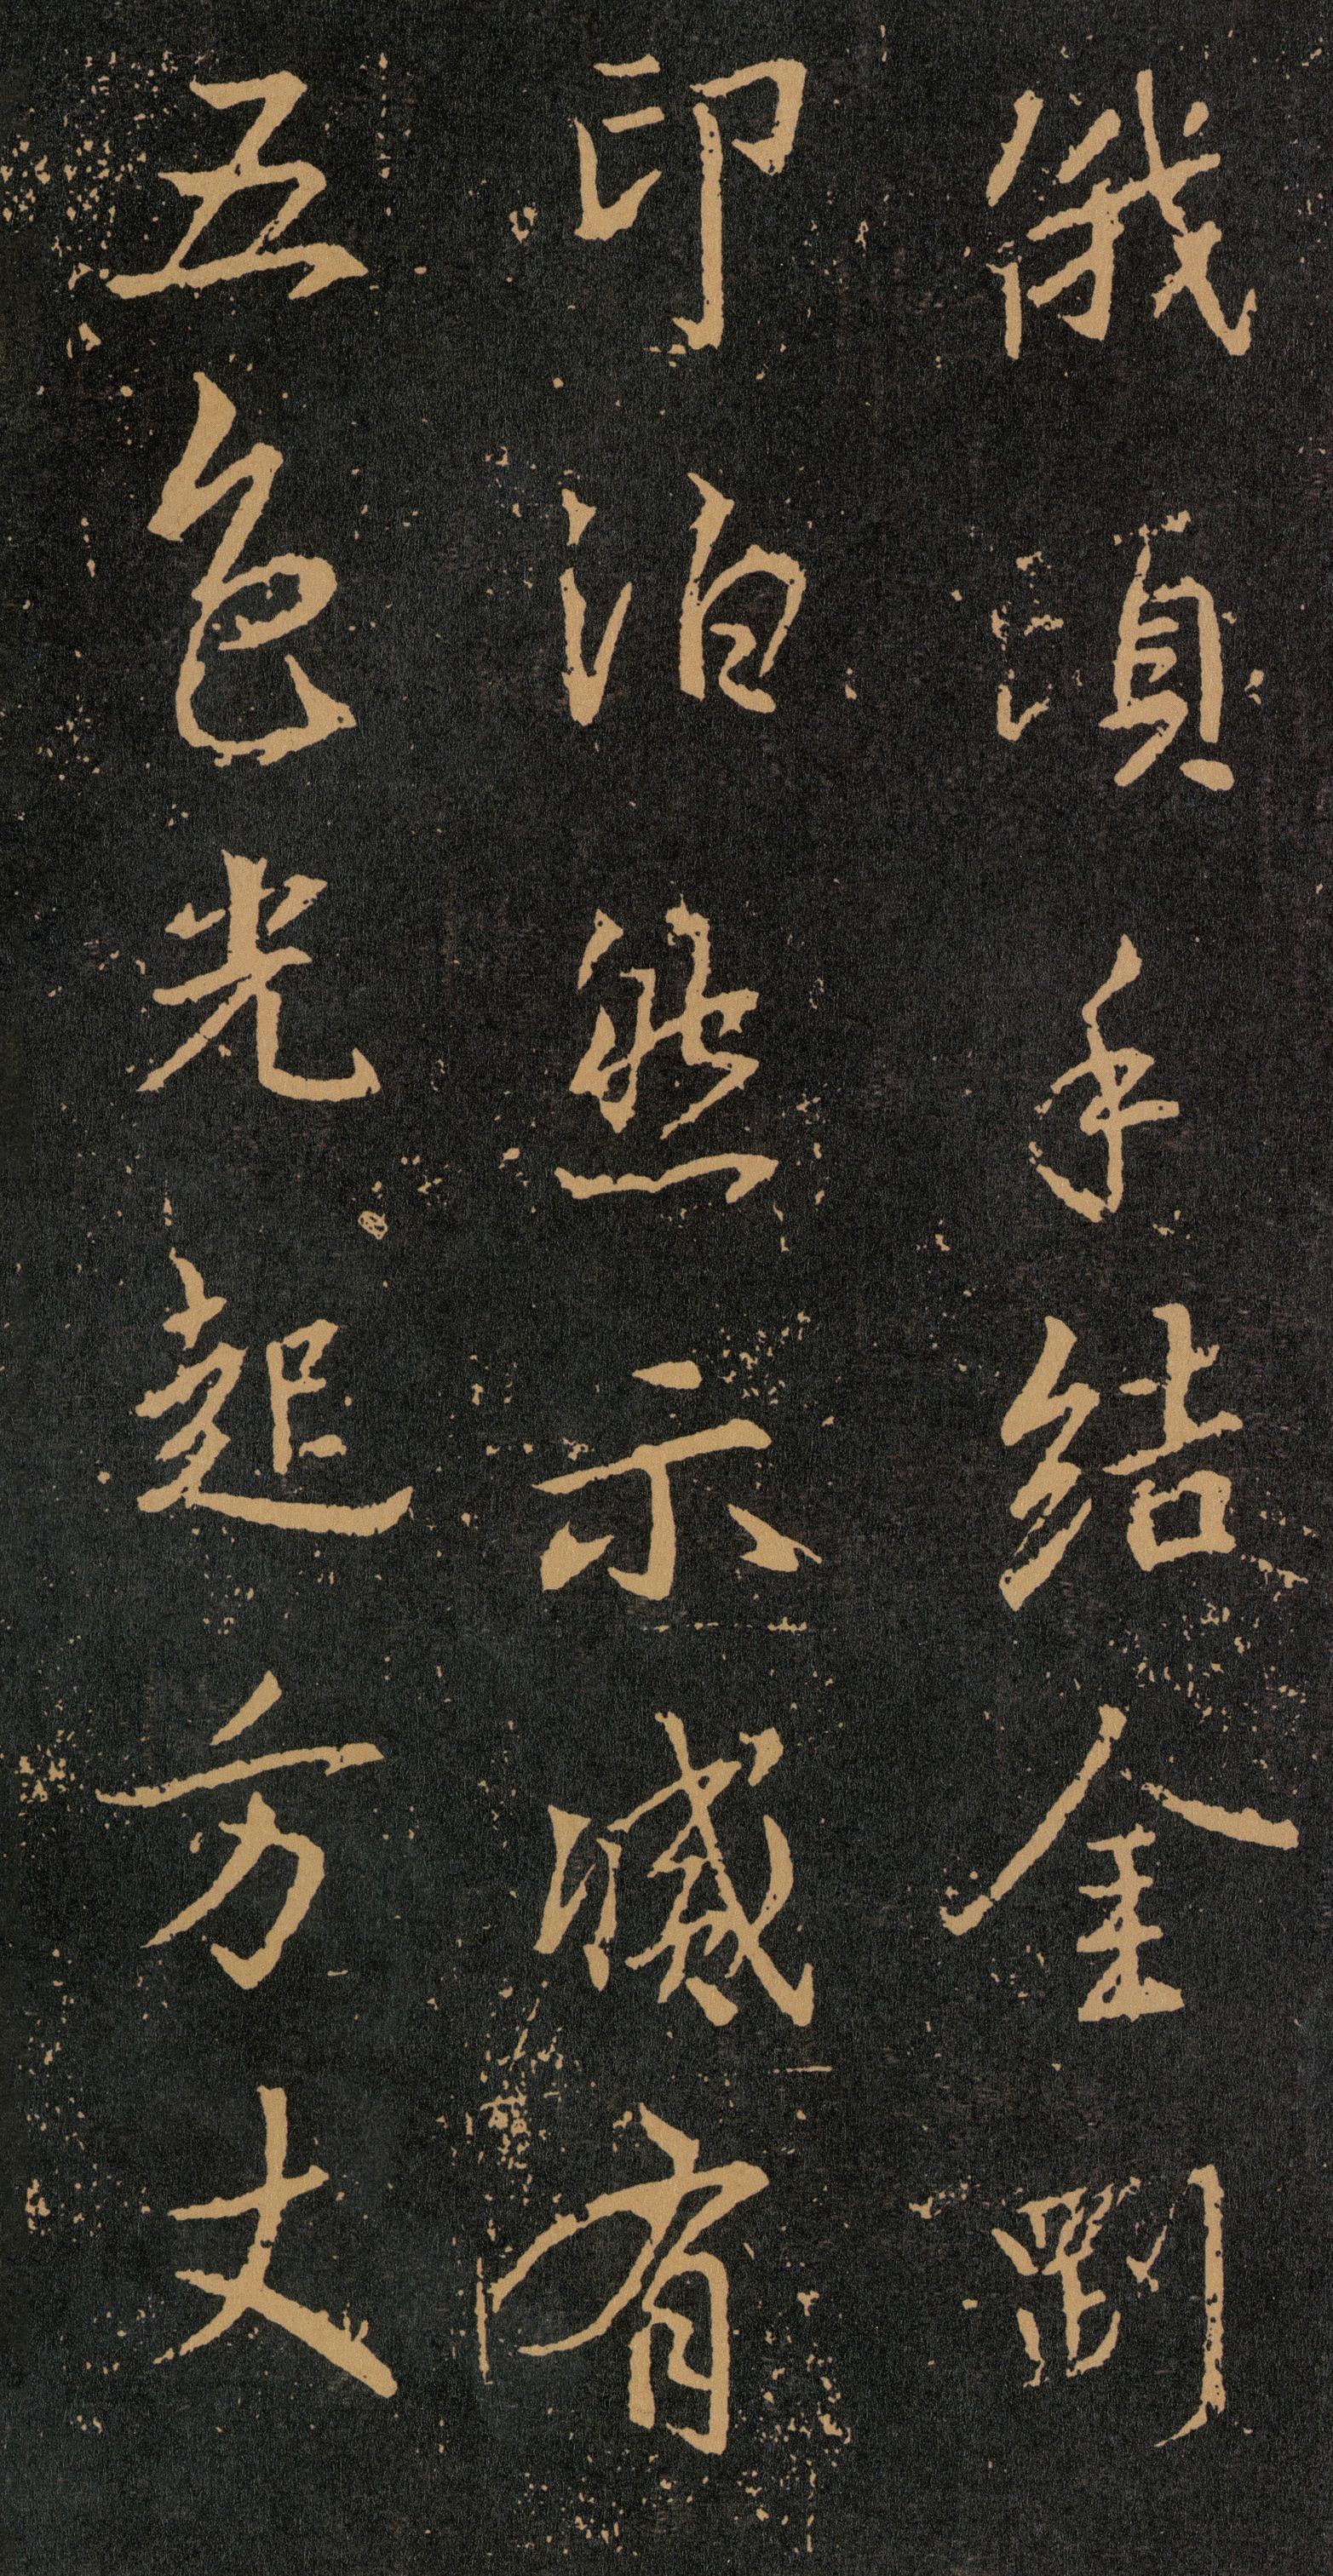 俄頃手結金剛
印泊然示滅有
五色光起方丈